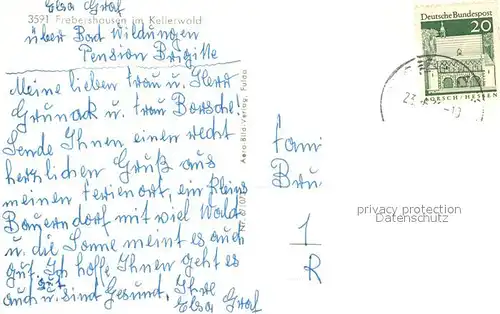 Elsa Graf
3591 Frebershausen im Kellerwald
über Bad Wildungen
Pension Brigitte
Meine lieben Frau u. Herr
Grunack u. Frau Borsche!
Sende Ihnen einen recht
herzlichen Gruß aus
meinen Ferienort, ein kleins
Bauerndorf mit viel Wald
u. die Sonne meint es auch
gut. Ich hoffe Ihnen geht es
auch gut u. sind Gesund, Ihre
Elsa Graf
Aero-Bild-Verlag, Fulda
Deutsche Bundespost
20
LORSCH/HESSEN
Fami
Bru
1
R
privacy protection
Datenschutz